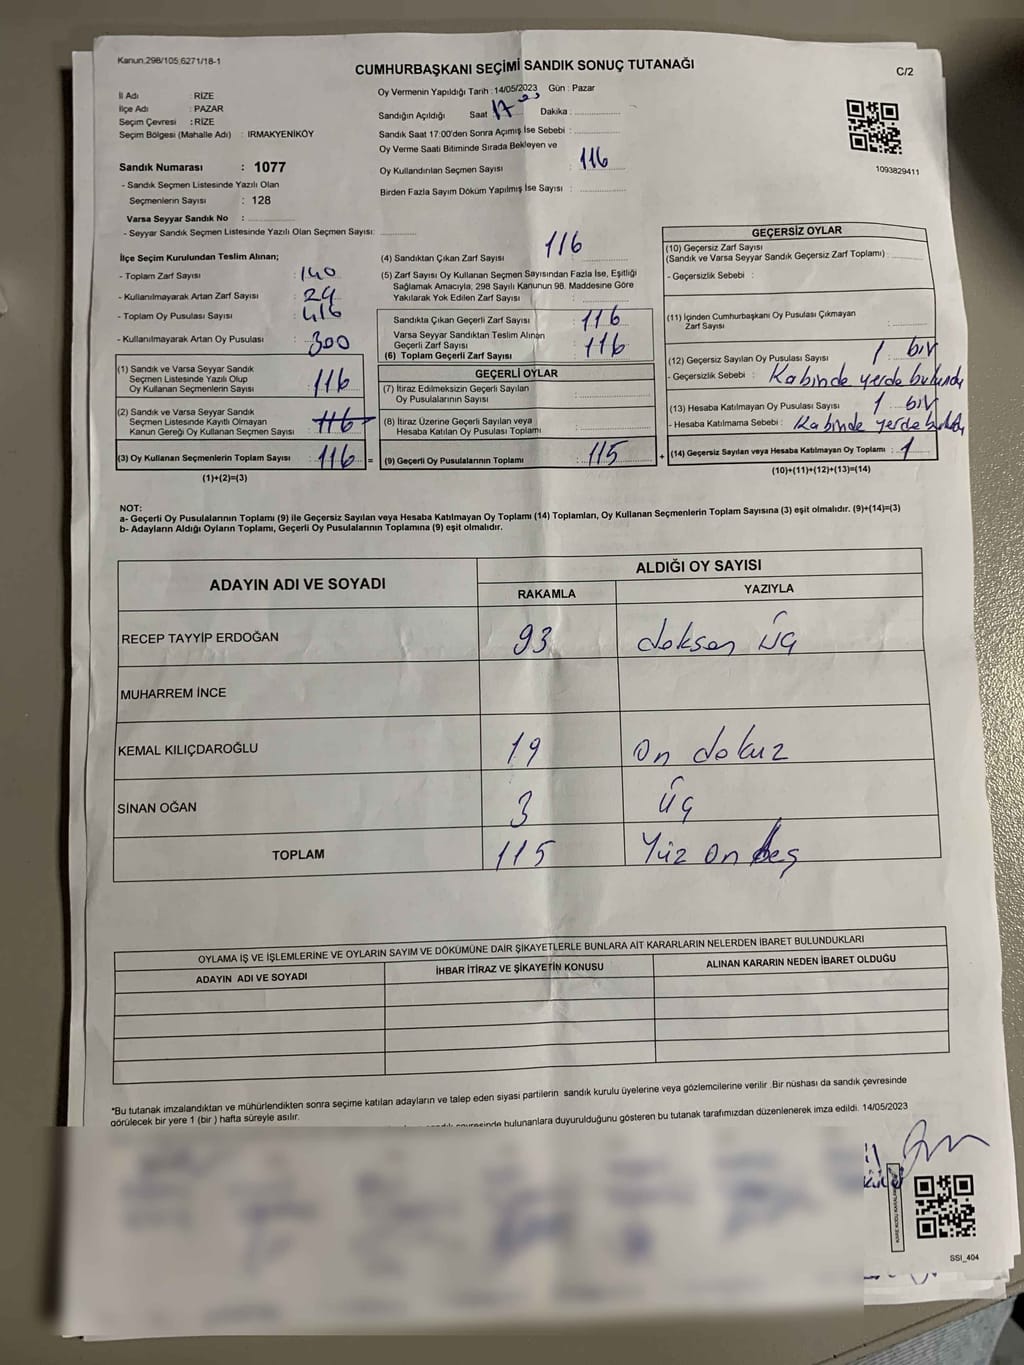 Kanun.298/105,6271/18-1
CUMHURBAŞKANI SEÇİMİ SANDIK SONUÇ TUTANAĞI
C/2
İl Adı : RİZE
İlçe Adı : PAZAR
Seçim Çevresi : RİZE
Seçim Bölgesi (Mahalle Adı) : IRMAKYENİKÖY
Sandık Numarası : 1077
- Sandık Seçmen Listesinde Yazılı Olan
Seçmenlerin Sayısı : 128
Varsa Seyyar Sandık No :
- Seyyar Sandık Seçmen Listesinde Yazılı Olan Seçmen Sayısı:
Oy Vermenin Yapıldığı Tarih : 14/05/2023 Gün : Pazar
Sandığın Açıldığı Saat : 17 00 Dakika :
Sandık Saat 17:00'den Sonra Açımış İse Sebebi :
Oy Verme Saati Bitiminde Sırada Bekleyen ve
Oy Kullandırılan Seçmen Sayısı : 116
Birden Fazla Sayım Döküm Yapılmış İse Sayısı :
1093829411
İlçe Seçim Kurulundan Teslim Alınan;
- Toplam Zarf Sayısı : 140
- Kullanılmayarak Artan Zarf Sayısı : 24
- Toplam Oy Pusulası Sayısı : 416
- Kullanılmayarak Artan Oy Pusulası : 300
(1) Sandık ve Varsa Seyyar Sandık
Seçmen Listesinde Yazılı Olup
Oy Kullanan Seçmenlerin Sayısı : 116
(2) Sandık ve Varsa Seyyar Sandık
Seçmen Listesinde Kayıtlı Olmayan
Kanun Gereği Oy Kullanan Seçmen Sayısı : 116
(3) Oy Kullanan Seçmenlerin Toplam Sayısı : 116 =
(1)+(2)=(3)
(4) Sandıktan Çıkan Zarf Sayısı : 116
(5) Zarf Sayısı Oy Kullanan Seçmen Sayısından Fazla İse, Eşitliği
Sağlamak Amacıyla; 298 Sayılı Kanunun 98. Maddesine Göre
Yakılarak Yok Edilen Zarf Sayısı :
Sandıkta Çıkan Geçerli Zarf Sayısı : 116
Varsa Seyyar Sandıktan Teslim Alınan
Geçerli Zarf Sayısı
(6) Toplam Geçerli Zarf Sayısı : 116
GEÇERLİ OYLAR
(7) İtiraz Edilmeksizin Geçerli Sayılan
Oy Pusulalarının Sayısı :
(8) İtiraz Üzerine Geçerli Sayılan veya
Hesaba Katılan Oy Pusulası Toplamı :
(9) Geçerli Oy Pusulalarının Toplamı : 115 +
GEÇERSİZ OYLAR
(10) Geçersiz Zarf Sayısı
(Sandık ve Varsa Seyyar Sandık Geçersiz Zarf Toplamı) :
- Geçersizlik Sebebi :
(11) İçinden Cumhurbaşkanı Oy Pusulası Çıkmayan
Zarf Sayısı :
(12) Geçersiz Sayılan Oy Pusulası Sayısı : 1 bir
- Geçersizlik Sebebi : Kabinde yerde bulundu
(13) Hesaba Katılmayan Oy Pusulası Sayısı : 1 bir
- Hesaba Katılmama Sebebi : Kabinde yerde bulundu
(14) Geçersiz Sayılan veya Hesaba Katılmayan Oy Toplamı : 1
(10)+(11)+(12)+(13)=(14)
NOT:
a- Geçerli Oy Pusulalarının Toplamı (9) ile Geçersiz Sayılan veya Hesaba Katılmayan Oy Toplamı (14) Toplamları, Oy Kullanan Seçmenlerin Toplam Sayısına (3) eşit olmalıdır. (9)+(14)=(3)
b- Adayların Aldığı Oyların Toplamı, Geçerli Oy Pusulalarının Toplamına (9) eşit olmalıdır.
ADAYIN ADI VE SOYADI
ALDIĞI OY SAYISI
RAKAMLA YAZIYLA
RECEP TAYYİP ERDOĞAN 93 doksan üç
MUHARREM İNCE
KEMAL KILIÇDAROĞLU 19 on dokuz
SİNAN OĞAN 3 üç
TOPLAM 115 Yüz on beş
OYLAMA İŞ VE İŞLEMLERİNE VE OYLARIN SAYIM VE DÖKÜMÜNE DAİR ŞİKAYETLERLE BUNLARA AİT KARARLARIN NELERDEN İBARET BULUNDUKLARI
ADAYIN ADI VE SOYADI İHBAR İTİRAZ VE ŞİKAYETİN KONUSU ALINAN KARARIN NEDEN İBARET OLDUĞU
*Bu tutanak imzalandıktan ve mühürlendikten sonra seçime katılan adayların ve talep eden siyasi partilerin sandık kurulu üyelerine veya gözlemcilerine verilir .Bir nüshası da sandık çevresinde
görülecek bir yere 1 (bir ) hafta süreyle asılır.
bulunanlara duyurulduğunu gösteren bu tutanak tarafımızdan düzenlenerek imza edildi. 14/05/2023
SSI_404